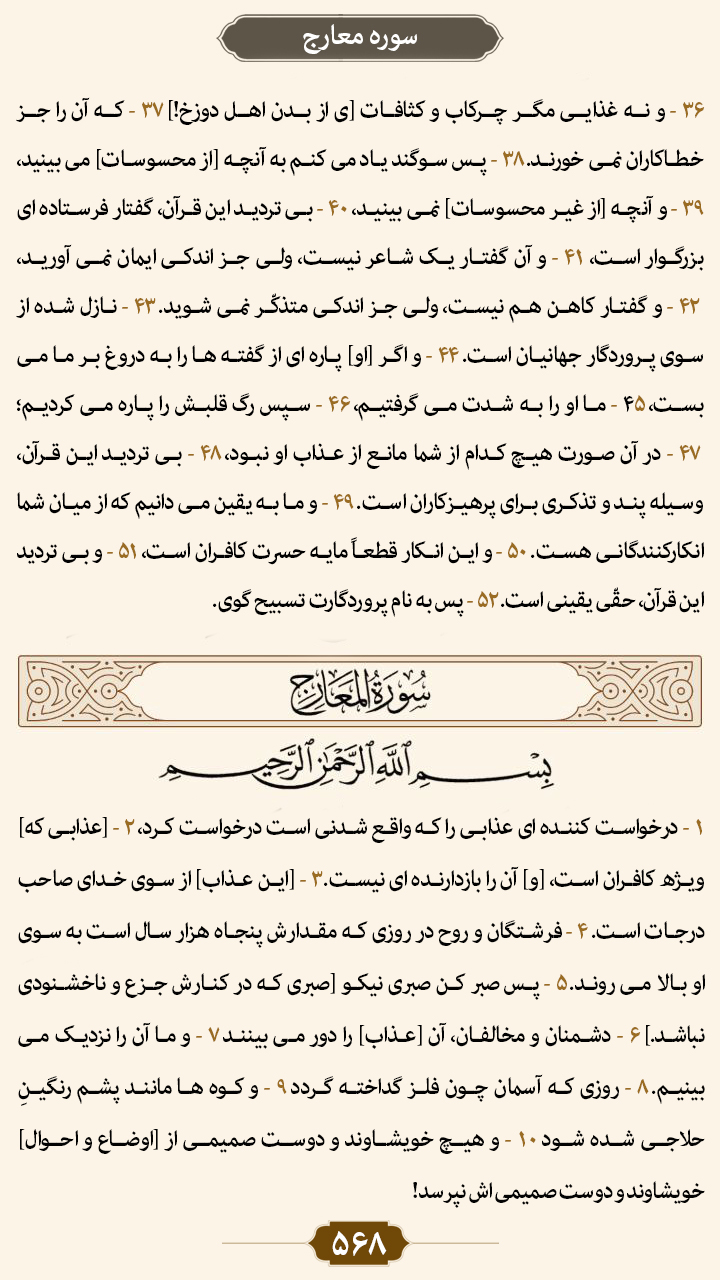 سوره معارج
۳۶ - و نه غذایی مگر چرکاب و کثافات [ی از بدن اهل دوزخ!] ۳۷ - که آن را جز
خطاکاران نمی خورند. ۳۸ - پس سوگند یاد می کنم به آنچه [از محسوسات] می بینید،
۳۹ - و آنچه [از غیر محسوسات] نمی بینید، ۴۰ - بی تردید این قرآن، گفتار فرستاده ای
بزرگوار است، ۴۱ - و آن گفتار یک شاعر نیست، ولی جز اندکی ایمان نمی آورید،
۴۲ - و گفتار کاهن هم نیست، ولی جز اندکی متذکّر نمی شوید. ۴۳ - نازل شده از
سوی پروردگار جهانیان است. ۴۴ - و اگر [او] پاره ای از گفته ها را به دروغ بر ما می
بست، ۴۵ - ما او را به شدت می گرفتیم، ۴۶ - سپس رگ قلبش را پاره می کردیم؛
۴۷ - در آن صورت هیچ کدام از شما مانع از عذاب او نبود، ۴۸ - بی تردید این قرآن،
وسیله پند و تذکری برای پرهیزکاران است. ۴۹ - و ما به یقین می دانیم که از میان شما
انکارکنندگانی هست. ۵۰ - و این انکار قطعاً مایه حسرت کافران است، ۵۱ - و بی تردید
این قرآن، حقّی یقینی است. ۵۲ - پس به نام پروردگارت تسبیح گوی.
سُورَةُ المَعَارِجِ
بِسْمِ اللَّهِ الرَّحْمَٰنِ الرَّحِيمِ
۱ - درخواست کننده ای عذابی را که واقع شدنی است درخواست کرد، ۲ - [عذابی که]
ویژه کافران است، [و] آن را بازدارنده ای نیست. ۳ - [این عذاب] از سوی خدای صاحب
درجات است. ۴ - فرشتگان و روح در روزی که مقدارش پنجاه هزار سال است به سوی
او بالا می روند. ۵ - پس صبر کن صبری نیکو [صبری که در کنارش جزع و ناخشنودی
نباشد.] ۶ - دشمنان و مخالفان، آن [عذاب] را دور می بینند ۷ - و ما آن را نزدیک می
بینیم. ۸ - روزی که آسمان چون فلز گداخته گردد ۹ - و کوه ها مانند پشم رنگینِ
حلاجی شده شود ۱۰ - و هیچ خویشاوند و دوست صمیمی از [اوضاع و احوال]
خویشاوند و دوست صمیمی اش نپرسد!
۵۶۸